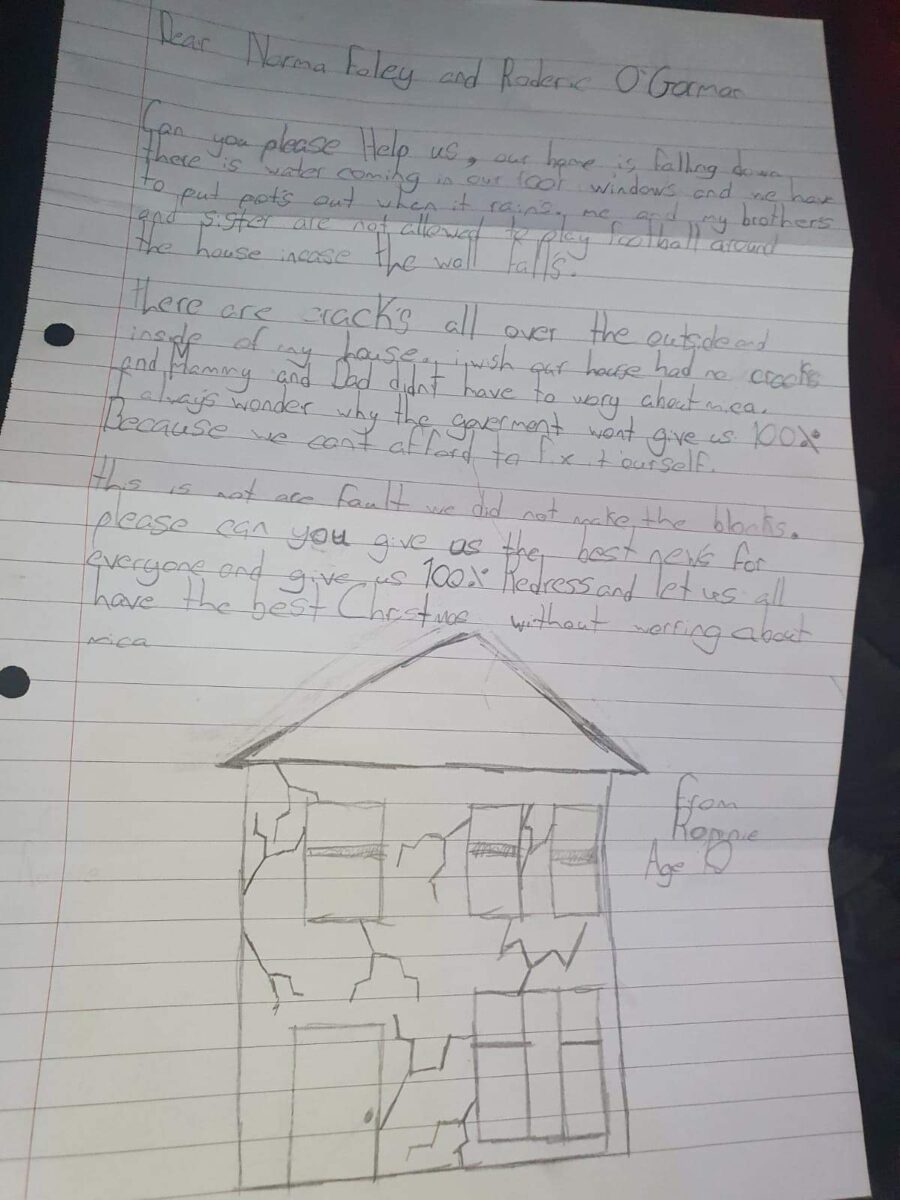 Dear Norma Foley and Roderic O'Gorman
Can you please Help us, our home is falling down
there is water coming in our roof windows and we have
to put pots out when it rains. me and my brothers
and sister are not allowed to play football around
the house incase the wall falls.
there are cracks all over the outside and
inside of my house. i wish our house had no cracks
and Mammy and Dad didnt have to wory about mica.
I always wonder why the goverment wont give us 100%
Because we cant afford to fix it ourself.
this is not are fault we did not make the blocks.
please can you give us the best news for
everyone and give us 100% Redress and let us all
have the best Chrstmas without worring about
mica
From
Age 10